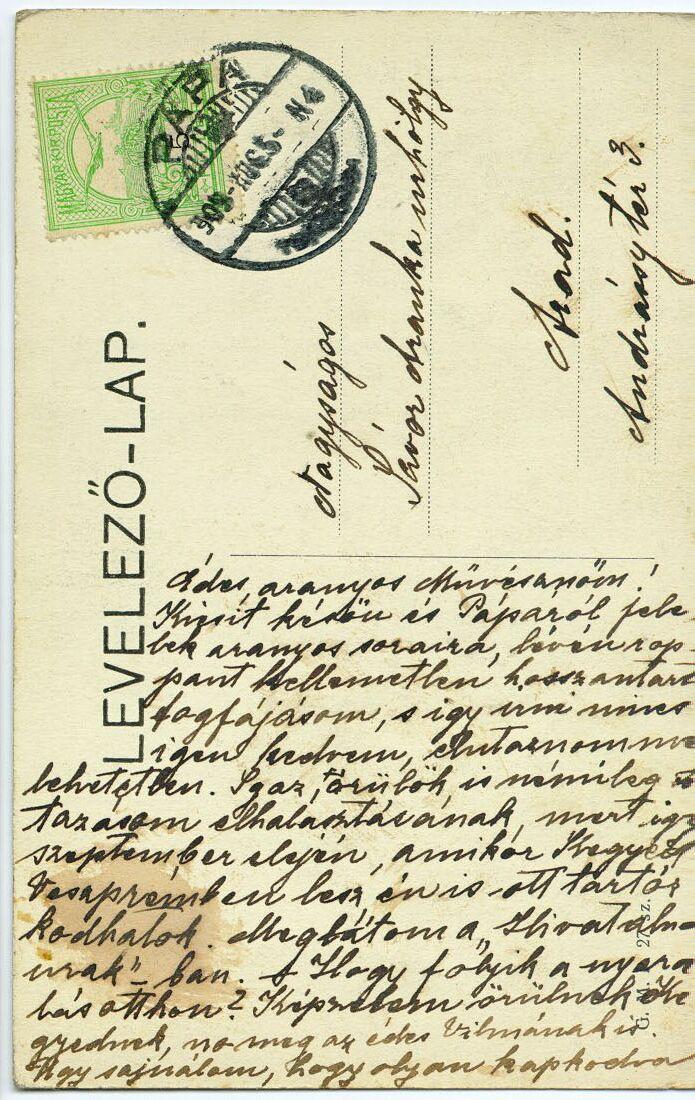 MAGYAR KIR. POSTA
PÁPA
LEVELEZŐ-LAP.
Nagyságos
Sávor Aranka urhölgy
Arad.
Andrássy tér 3.
Édes, aranyos Művésznőm!
Kicsit késön és Pápáról jele-
lek aranyos soraira, lévén rop-
pant kellemetlen hosszantart
fogfájásom, s igy irni nincs
igen kedvem, elutaznom me
lehetetlen. Igaz, örülök is némileg
tazásom elhalasztásának, mert igy
szeptember elején, amikor Kegyed
Veszprémben lesz én is ott tartóz
kodhatok. Megbátom a
urak"-ban. Hogy folyik a nyara
lás otthon? Képzelem örülnek Ke
gyednek, no meg az édes Vilmának is.
Ugy sajnálom, hogy olyan kapkodva